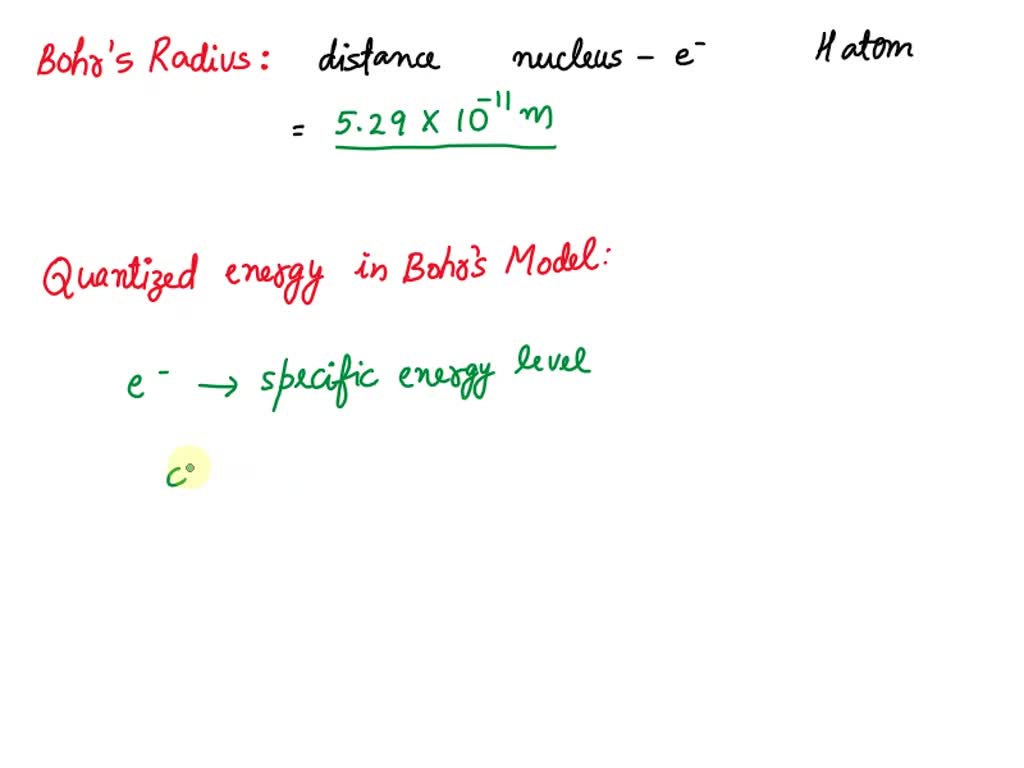 Bohr's Radius: distance nucleus - e⁻ H atom
= 5.29 × 10⁻¹¹ m
Quantized energy in Bohr's Model:
e⁻ → specific energy level
c